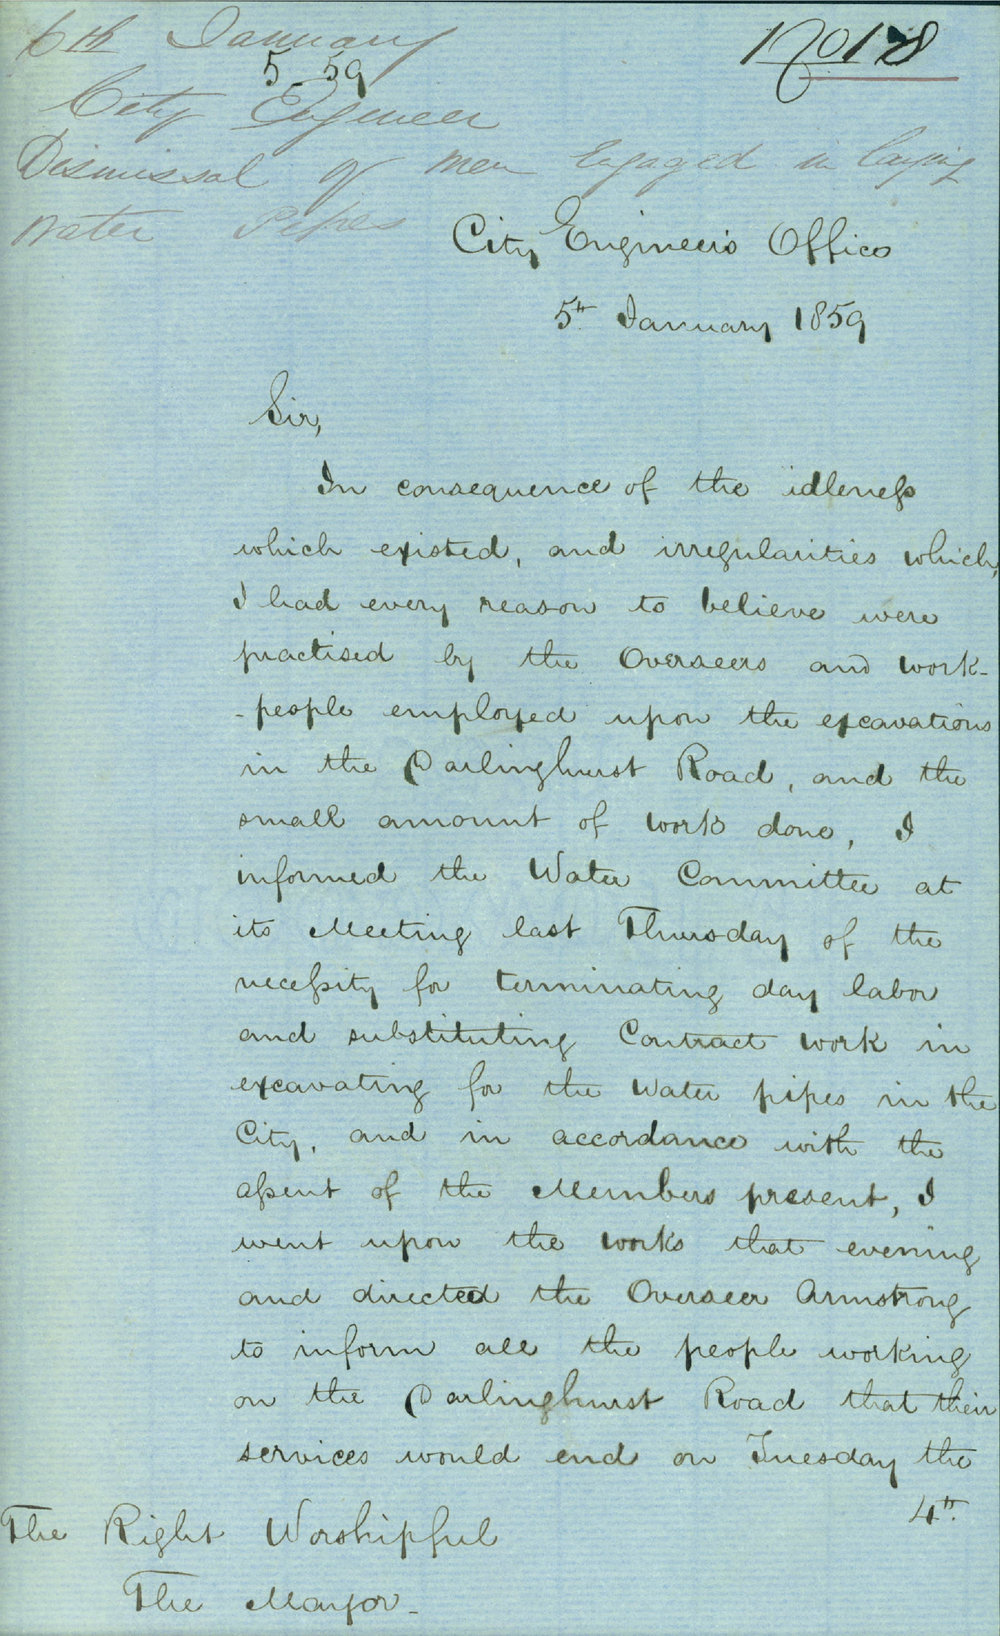 6th January
No 18
5 59
City Engineer
Dismissal of men Engaged in laying
Water Pipes
City Engineer's Office
5th January 1859
Sir,
In consequence of the idleness
which existed, and irregularities which,
I had every reason to believe were
practised by the Overseers and work-
-people employed upon the excavations
in the Darlinghurst Road, and the
small amount of work done, I
informed the Water Committee at
its Meeting last Thursday of the
necessity for terminating day labor
and substituting Contract work in
excavating for the Water pipes in the
City, and in accordance with the
assent of the Members present, I
went upon the works that evening
and directed the Overseer Armstrong
to inform all the people working
on the Darlinghurst Road that their
services would end on Tuesday the
4th.
The Right Worshipful
The Mayor-